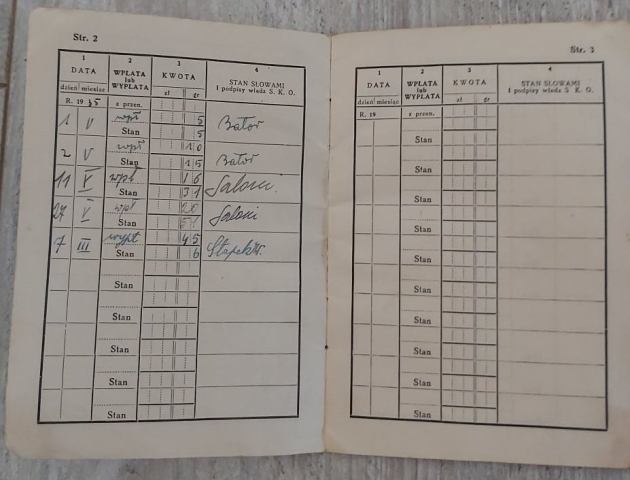 Str. 2
1 2 3 4
DATA WPŁATA lub WYPŁATA KWOTA STAN SŁOWAMI i podpisy władz S. K. O.
dzień miesiąc zł gr
R. 19 35 z przen.
1 V wpł 5 Bator
Stan 5
2 V wpł 10 Bator
Stan 15
11 V wpł 16
Stan 31
27 V wpł 20
Stan 51
7 III wypł 45
Stan 6
Stan
Stan
Stan
Stan
Stan
Str. 3
1 2 3 4
DATA WPŁATA lub WYPŁATA KWOTA STAN SŁOWAMI i podpisy władz S. K. O.
dzień miesiąc zł gr
R. 19 z przen.
Stan
Stan
Stan
Stan
Stan
Stan
Stan
Stan
Stan
Stan